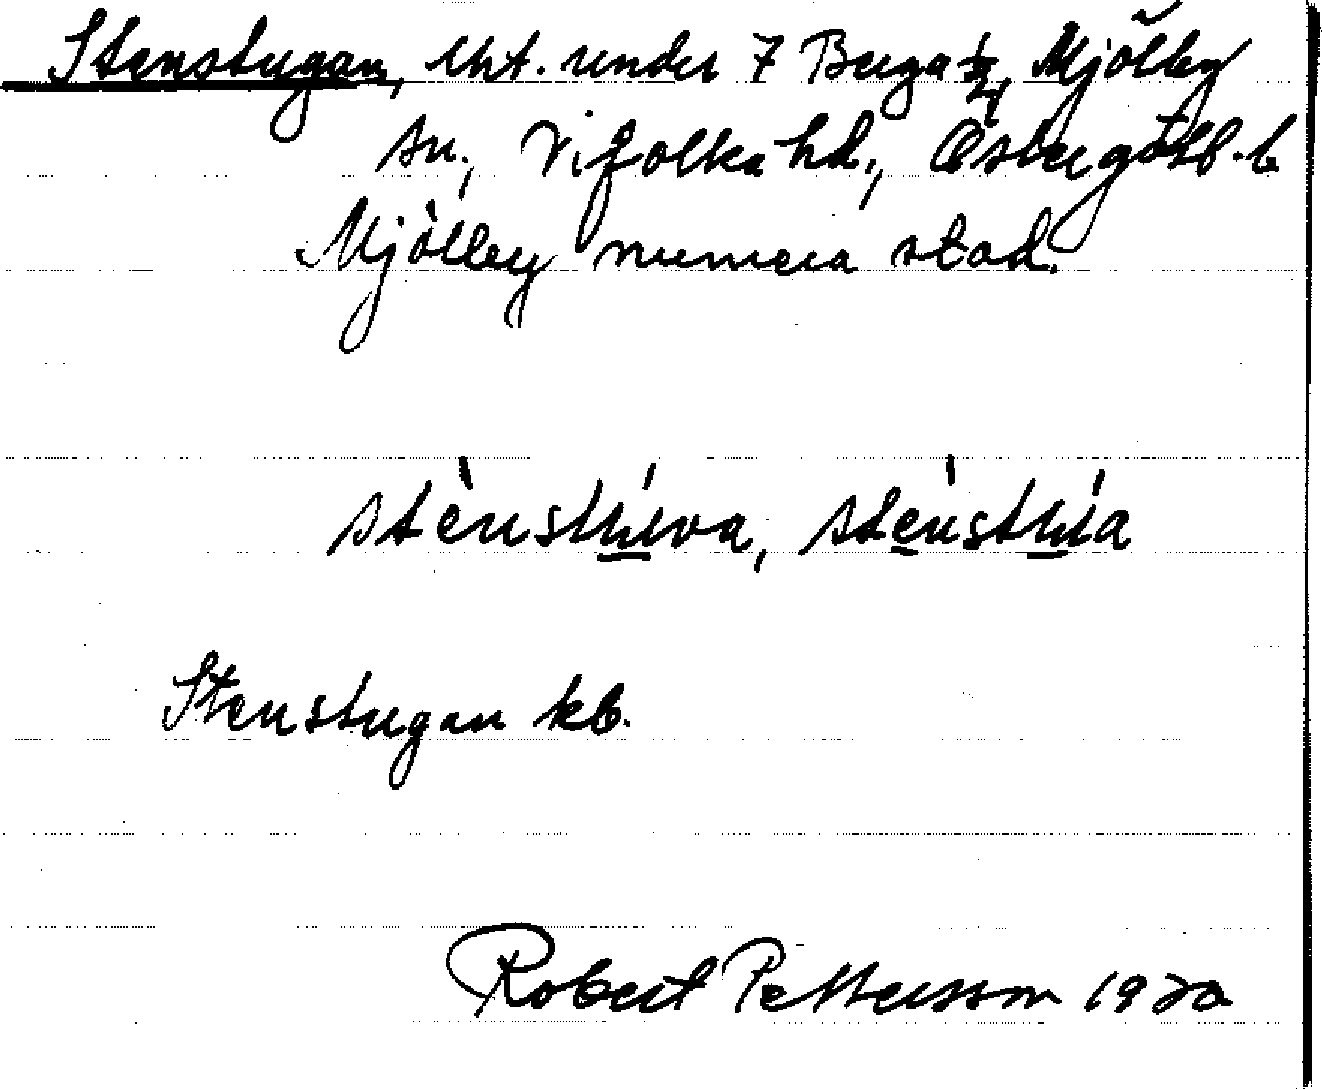 Stenstugan, lht. under 7 Berga 1/4, Mjölby
sn., Vifolka hd., Östergötl. l
Mjölby numera stad.
stènstúva, stènstúa
Stenstugan kb.
Robert Pettersson 1920